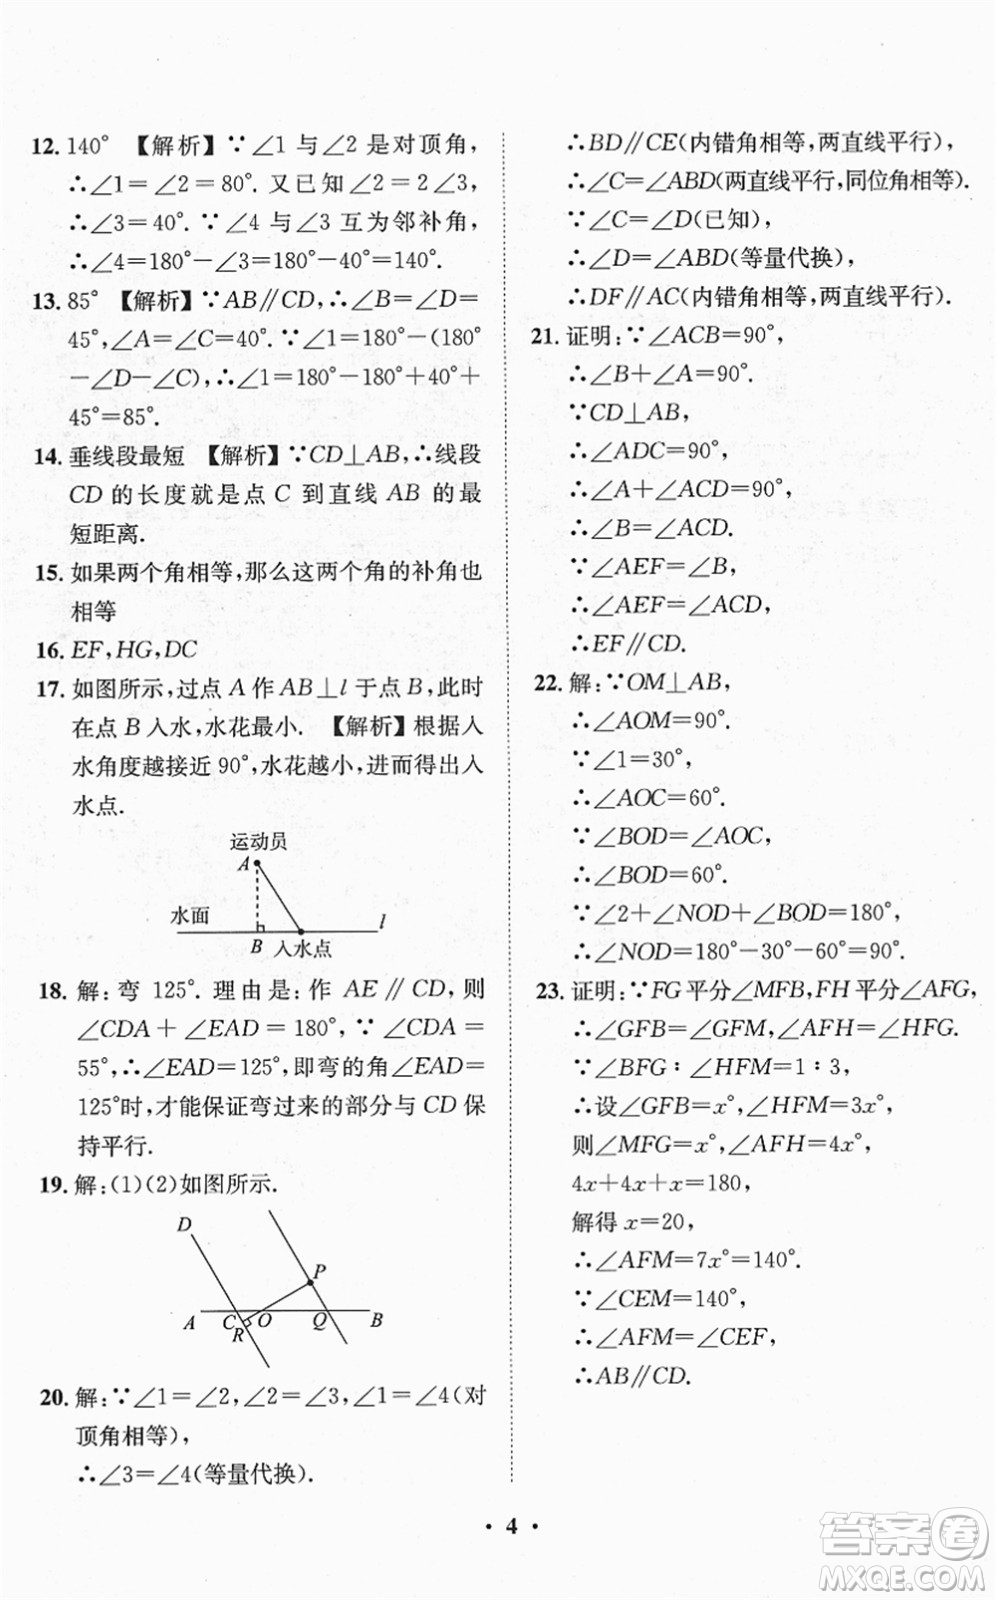 12. 140° 【解析】∵∠1 与∠2 是对顶角,
∴∠1=∠2=80°. 又已知∠2=2∠3,
∴∠3=40°. ∵∠4 与∠3 互为邻补角,
∴∠4=180°-∠3=180°-40°=140°.
13. 85° 【解析】∵AB∥CD,∴∠B=∠D=
45°,∠A=∠C=40°. ∵∠1=180°-(180°
-∠D-∠C),∴∠1=180°-180°+40°+
45°=85°.
14. 垂线段最短 【解析】∵CD⊥AB,∴线段
CD 的长度就是点 C 到直线 AB 的最
短距离.
15. 如果两个角相等,那么这两个角的补角也
相等
16. EF,HG,DC
17. 如图所示,过点 A 作 AB⊥l 于点 B,此时
在点 B 入水,水花最小. 【解析】根据入
水角度越接近 90°,水花越小,进而得出入
水点.
运动员
A
水面
l
B 入水点
18. 解:弯 125°. 理由是:作 AE∥CD,则
∠CDA+∠EAD=180°,∵∠CDA=
55°,∴∠EAD=125°,即弯的角∠EAD=
125°时,才能保证弯过来的部分与 CD 保
持平行.
19. 解:(1)(2)如图所示.
D
P
A C O Q B
R
20. 解:∵∠1=∠2,∠2=∠3,∠1=∠4(对
顶角相等),
∴∠3=∠4(等量代换).
∴BD∥CE(内错角相等,两直线平行),
∴∠C=∠ABD(两直线平行,同位角相等).
∵∠C=∠D(已知),
∴∠D=∠ABD(等量代换),
∴DF∥AC(内错角相等,两直线平行).
21. 证明:∵∠ACB=90°,
∴∠B+∠A=90°.
∵CD⊥AB,
∴∠ADC=90°,
∴∠A+∠ACD=90°,
∴∠B=∠ACD.
∵∠AEF=∠B,
∴∠AEF=∠ACD,
∴EF∥CD.
22. 解:∵OM⊥AB,
∴∠AOM=90°.
∵∠1=30°,
∴∠AOC=60°.
∵∠BOD=∠AOC,
∴∠BOD=60°.
∵∠2+∠NOD+∠BOD=180°,
∴∠NOD=180°-30°-60°=90°.
23. 证明:∵FG 平分∠MFB,FH 平分∠AFG,
∴∠GFB=∠GFM,∠AFH=∠HFG.
∵∠BFG∶∠HFM=1∶3,
∴设∠GFB=x°,∠HFM=3x°,
则∠MFG=x°,∠AFH=4x°,
4x+4x+x=180,
解得 x=20,
∴∠AFM=7x°=140°.
∵∠CEM=140°,
∴∠AFM=∠CEF,
∴AB∥CD.
• 4 •
答案卷
MXQE.COM